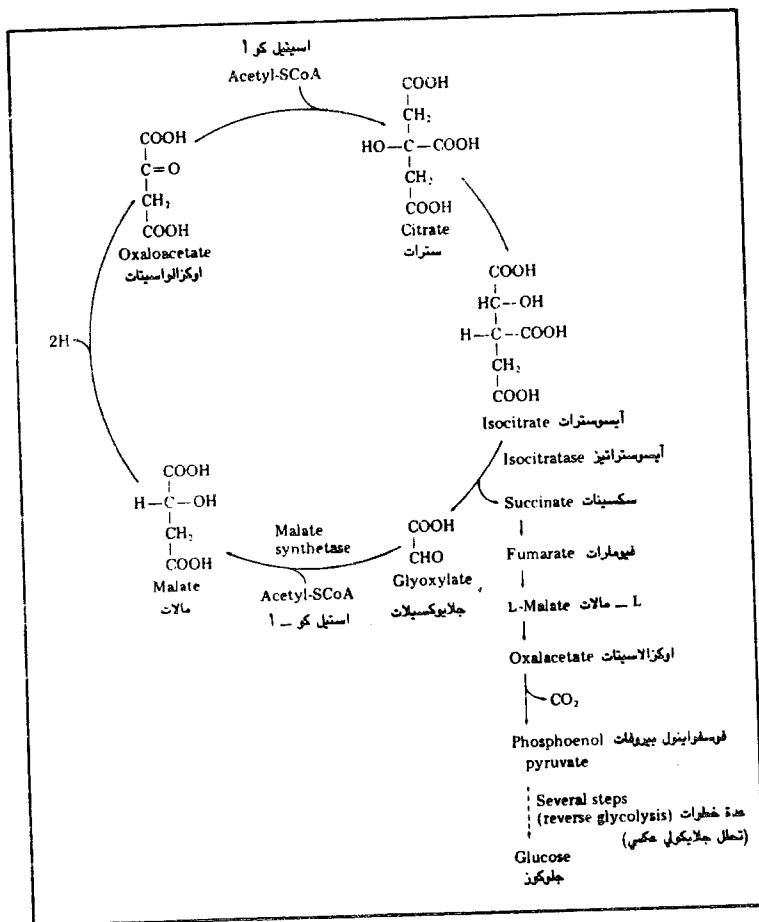 اسيتيل كو أ
Acetyl-SCoA
COOH
CH₂
HO—C—COOH
CH₂
COOH
Citrate
سترات
COOH
C=O
CH₂
COOH
Oxaloacetate
اوكزالواسيتات
COOH
HC—OH
H—C—COOH
CH₂
COOH
Isocitrate آيسوسترات
Isocitratase آيسوستراتيز
2H
COOH
H—C—OH
CH₂
COOH
Malate
مالات
Malate
synthetase
Acetyl-SCoA
استيل كو – أ
COOH
CHO
Glyoxylate
جلايوكسيلات
Succinate سكسينات
Fumarate فيومارات
L-Malate مالات – L
Oxalacetate اوكزالاسيتات
CO₂
Phosphoenol فوسفواينول بيروفات
pyruvate
Several steps
(reverse glycolysis) عدة خطوات
(تحلل جلايكولي عكسي)
Glucose
جلوكوز